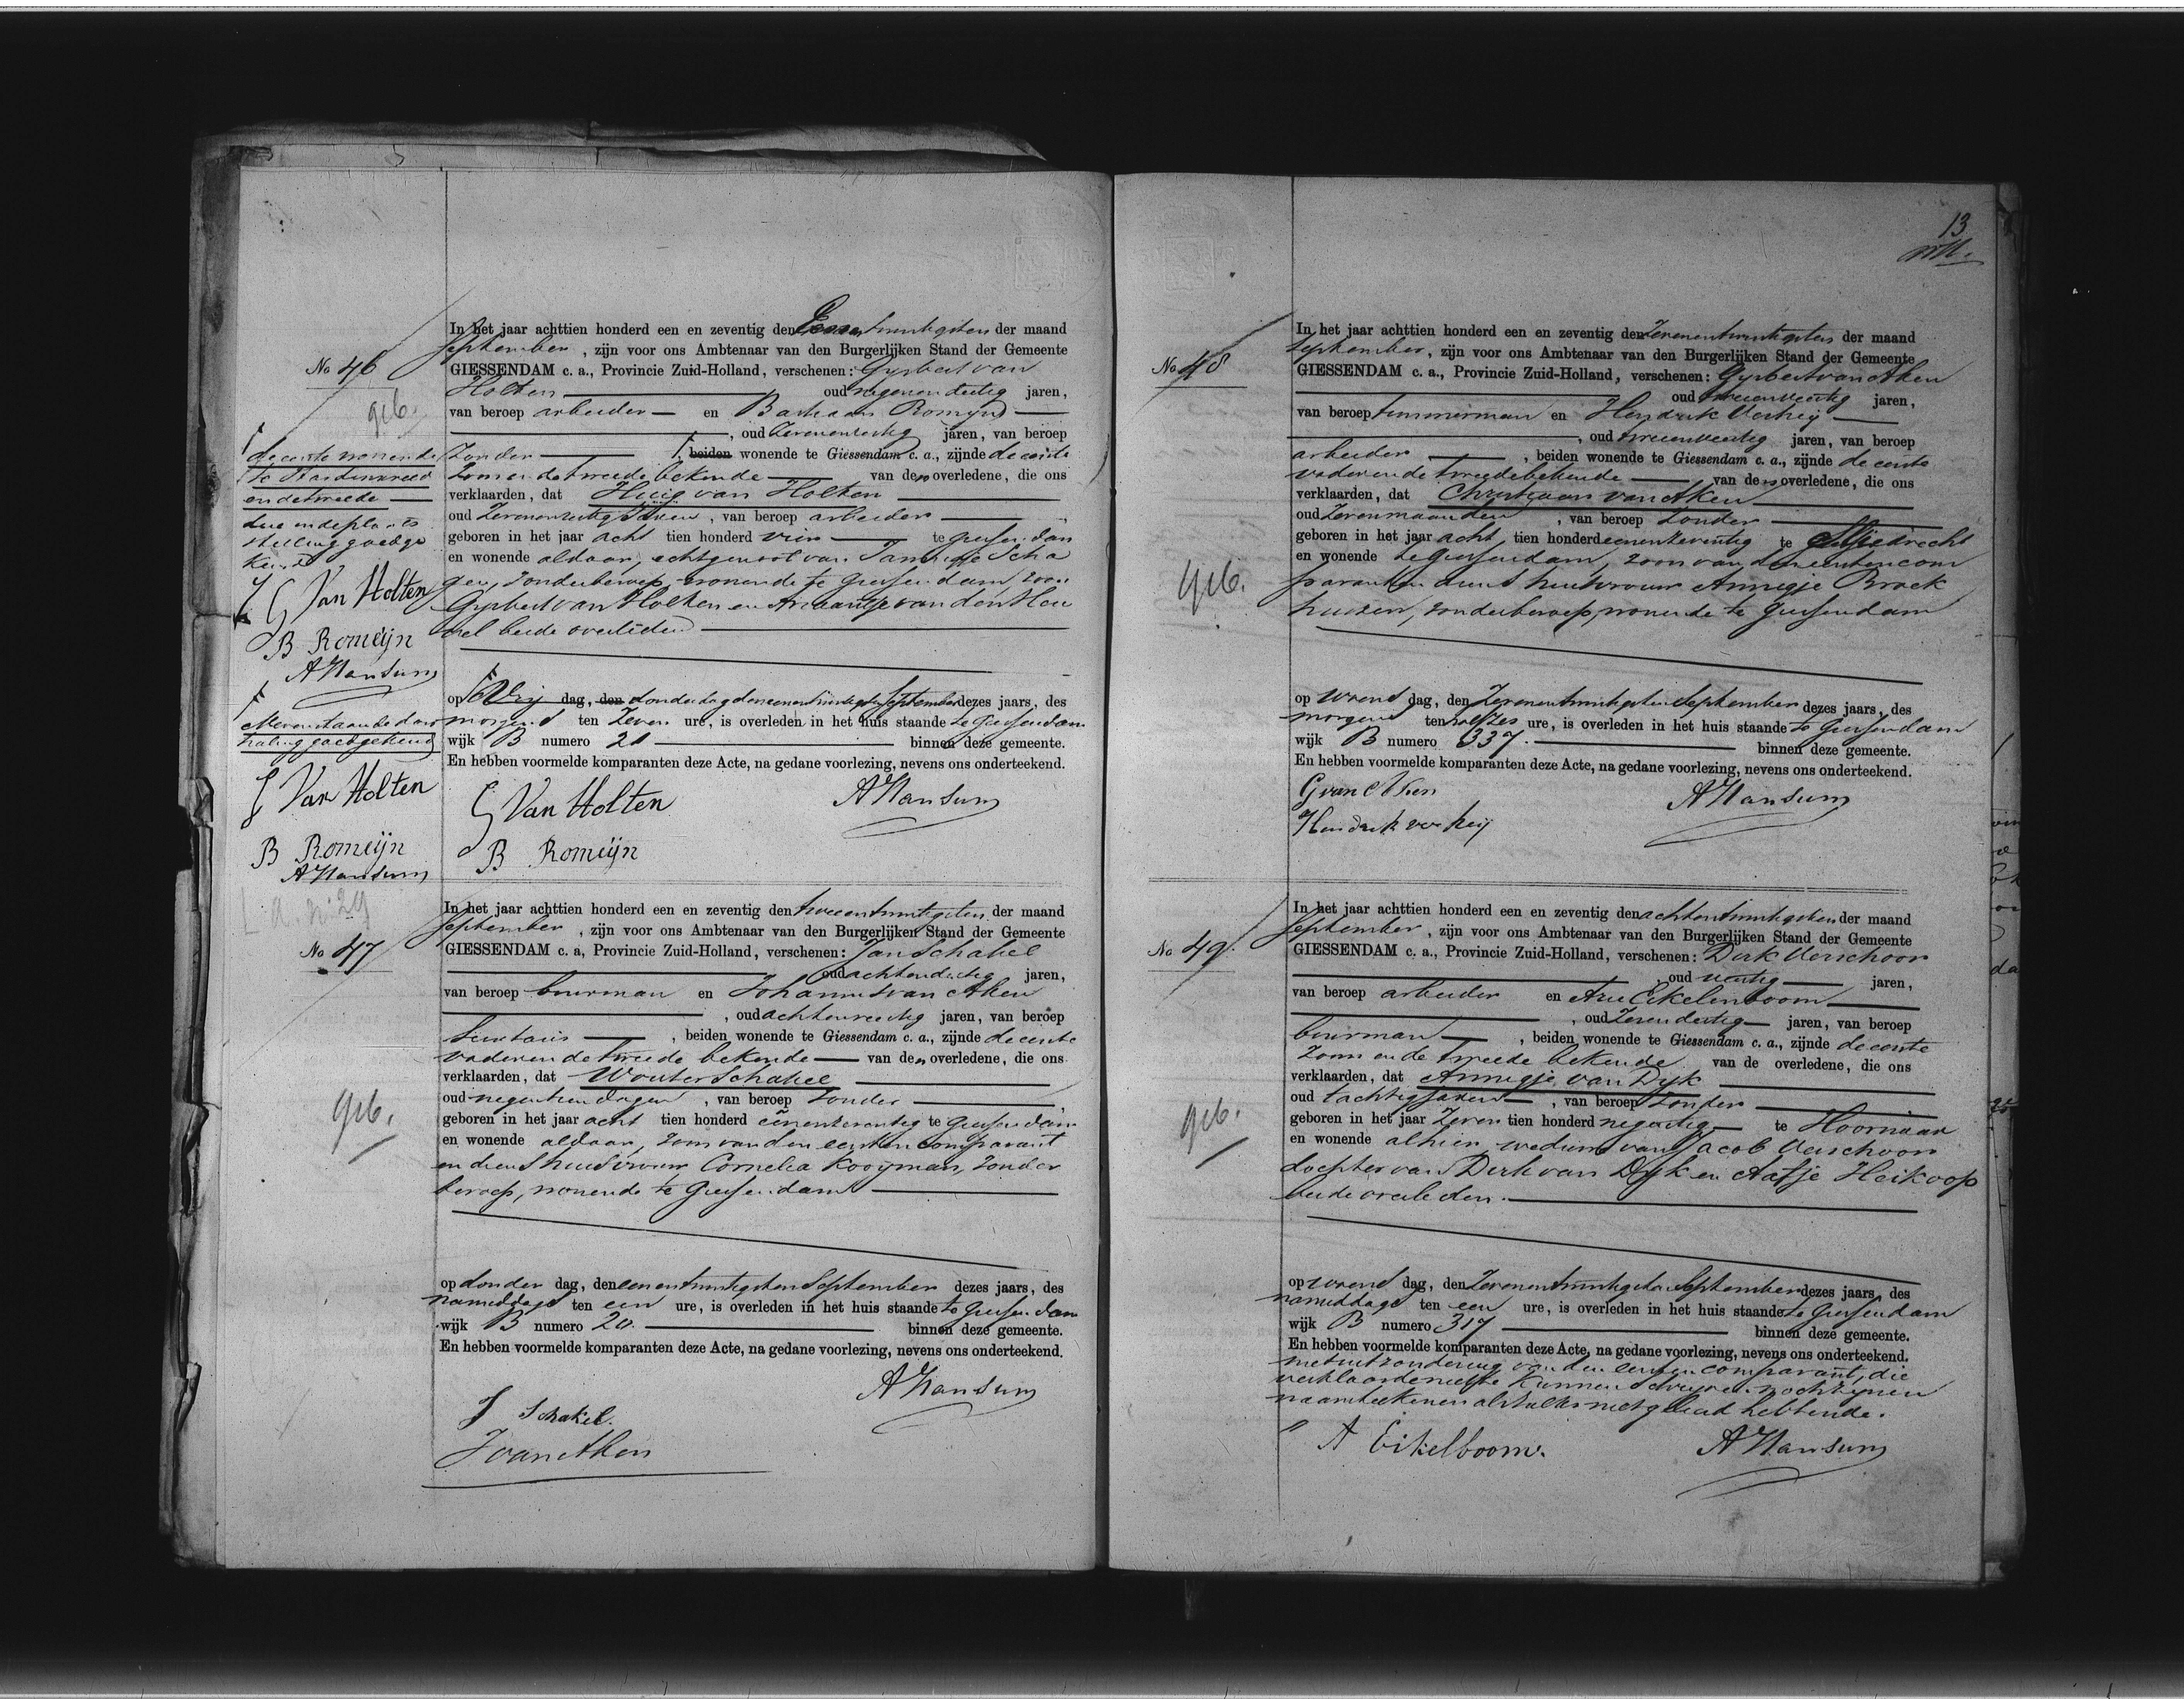 No 46
geb.
In het jaar achttien honderd een en zeventig den Eenentwintigsten der maand
September, zijn voor ons Ambtenaar van den Burgerlijken Stand der Gemeente
GIESSENDAM c. a., Provincie Zuid-Holland, verschenen: Gysbert van
Holten oud negenendertig jaren,
van beroep arbeider en Bastiaan Romeyn
, oud zevenenzestig jaren, van beroep
zonder beiden wonende te Giessendam c. a., zijnde de eerste
Zoon en de tweede bekende van den overledene, die ons
verklaarden, dat Huig van Holten
oud Zevenenzestig Jaren, van beroep arbeider
geboren in het jaar acht tien honderd vier te Giessendam
en wonende aldaar, echtgenoot van Jannigje Scha
gen, zonder beroep, wonende te Giessendam, zoon
Gysbert van Holten en Ariaantje van den Heu
vel beide overleden
op Vrij dag, den donderdag den eenentwintigsten September dezes jaars, des
morgens ten Zeven ure, is overleden in het huis staande te Giessendam
wijk B numero 21 binnen deze gemeente.
En hebben voormelde komparanten deze Acte, na gedane voorlezing, nevens ons onderteekend.
G Van Holten
A Hansum
B Romeijn
de eerste wonende
te Hardinxveld
en de tweede
goedge
keurd
G Van Holten
B Romeijn
A Hansum
Nevenstaande door
haling goedgekeurd
G Van Holten
B Romeijn
A Hansum
L a. n: 29
No 47
geb.
In het jaar achttien honderd een en zeventig den tweeentwintigsten der maand
September, zijn voor ons Ambtenaar van den Burgerlijken Stand der Gemeente
GIESSENDAM c. a, Provincie Zuid-Holland, verschenen: Jan Schakel
oud achtendertig jaren,
van beroep bouwman en Johannes van Aken
, oud achtenveertig jaren, van beroep
Secretaris, beiden wonende te Giessendam c. a., zijnde de eerste
vader en de tweede bekende van den overledene, die ons
verklaarden, dat Wouter Schakel
oud negentien dagen, van beroep zonder
geboren in het jaar acht tien honderd eenenzeventig te Giessendam
en wonende aldaar, zoon van den eersten comparant
en diens huisvrouw Cornelia Kooyman, zonder
beroep, wonende te Giessendam
op donder dag, den eenentwintigsten September dezes jaars, des
namiddags ten een ure, is overleden in het huis staande te Giessendam
wijk B numero 20. binnen deze gemeente.
En hebben voormelde komparanten deze Acte, na gedane voorlezing, nevens ons onderteekend.
A Hansum
J Schakel.
J van Aken
13
No 48
geb.
In het jaar achttien honderd een en zeventig den Zevenentwintigsten der maand
September, zijn voor ons Ambtenaar van den Burgerlijken Stand der Gemeente
GIESSENDAM c. a., Provincie Zuid-Holland, verschenen: Gysbert van Aken
oud tweeenveertig jaren,
van beroep timmerman en Hendrik Verheij
, oud tweeenveertig jaren, van beroep
arbeider, beiden wonende te Giessendam c. a., zijnde de eerste
vader en de tweede bekende van den overledene, die ons
verklaarden, dat Christiaan van Aken
oud Zeven maanden, van beroep zonder
geboren in het jaar acht tien honderd eenenzeventig te Sliedrecht
en wonende te Giessendam, zoon van den eersten com
parant en diens huisvrouw Annigje Broek
huizen, zonder beroep, wonende te Giessendam
op woens dag, den Zevenentwintigsten September dezes jaars, des
morgens ten half zes ure, is overleden in het huis staande te Giessendam
wijk B numero 337. binnen deze gemeente.
En hebben voormelde komparanten deze Acte, na gedane voorlezing, nevens ons onderteekend.
G van Aken
A Hansum
Hendrik verheij
No 49.
geb.
In het jaar achttien honderd een en zeventig den achtentwintigsten der maand
September, zijn voor ons Ambtenaar van den Burgerlijken Stand der Gemeente
GIESSENDAM c. a., Provincie Zuid-Holland, verschenen: Dirk Verschoor
oud veertig jaren,
van beroep arbeider en Arie Eikelenboom
, oud Zevendertig jaren, van beroep
bouwman, beiden wonende te Giessendam c. a., zijnde de eerste
Zoon en de tweede bekende van de overledene, die ons
verklaarden, dat Annigje van Dyk
oud tachtig jaren, van beroep zonder
geboren in het jaar Zeven tien honderd negentig te Hoornaar
en wonende alhier weduwe van Jacob Verschoor
dochter van Dirk van Dyk en Aafje Heikoop
beide overleden.
op woens dag, den Zevenentwintigsten September dezes jaars, des
namiddags ten een ure, is overleden in het huis staande te Giessendam
wijk B numero 317 binnen deze gemeente.
En hebben voormelde komparanten deze Acte, na gedane voorlezing, nevens ons onderteekend.
met uitzondering van den eersten comparant, die
verklaarde niet te kunnen schryven noch zynen
naam teekenen als zulks niet geleerd hebbende.
A Eikelboom.
A Hansum